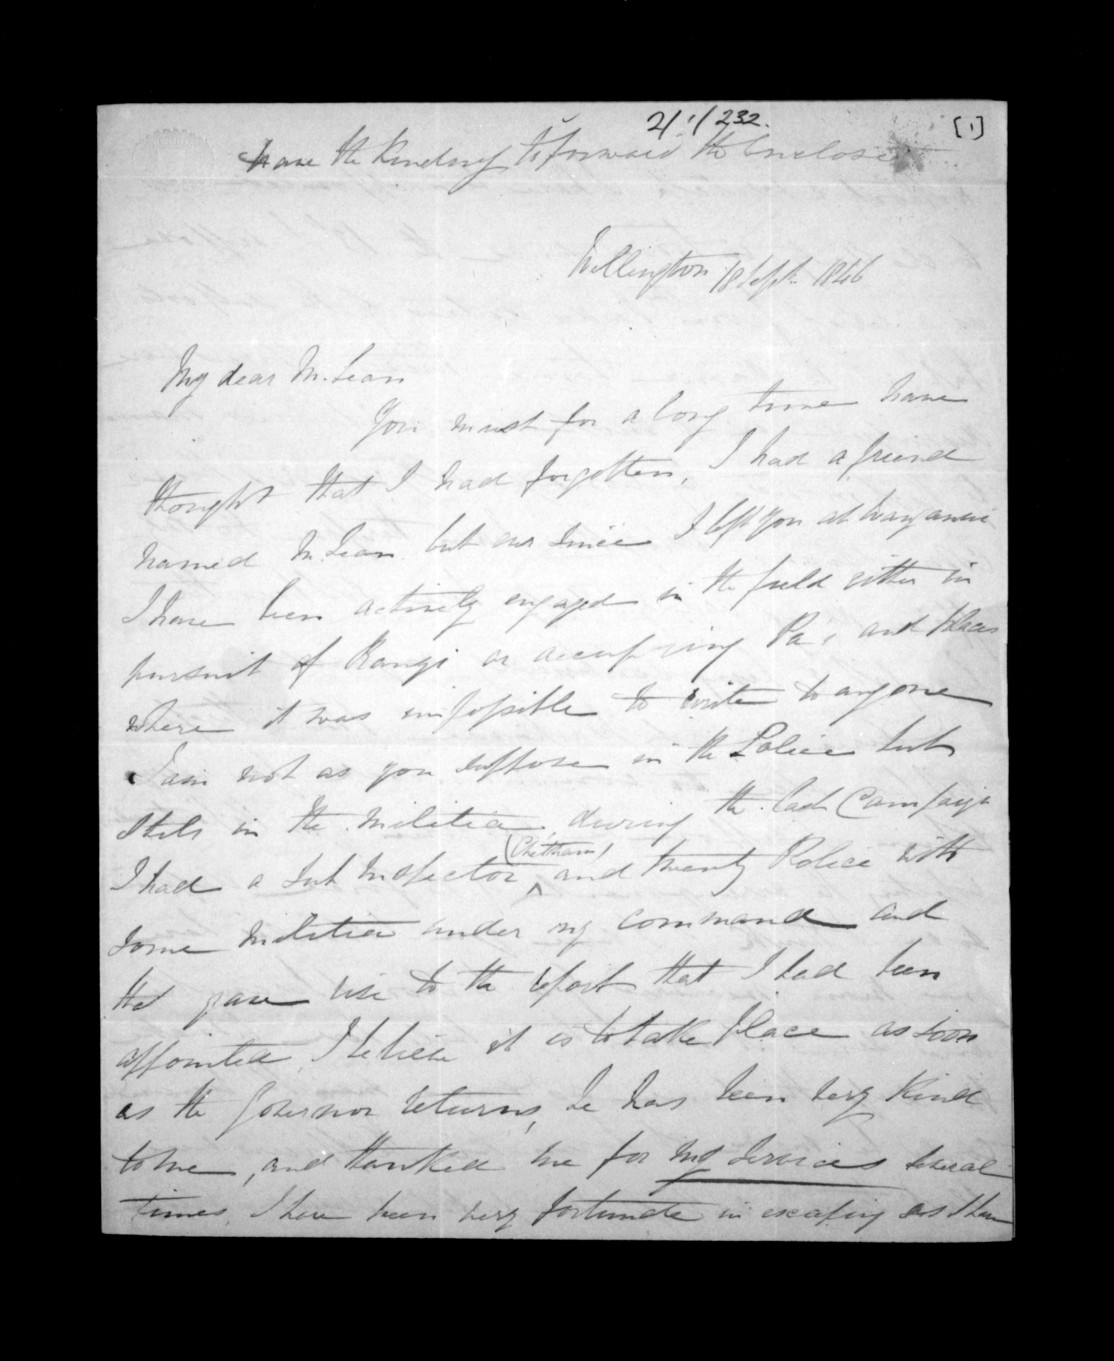 21/232.
[1]
have the kindness to forward the Enclosed
Wellington 18 Sept 1846
My dear McLean
You must for a long time have
thought that I had forgotten, I had a friend
named McLean but ever since I left you at Wanganui
I have been actively engaged in the field either in
pursuit of Rangi or occupying Pa's and places
where it was impossible to write to anyone
I am not as you suppose in the Police but
still in the Militia, during the last Campaign
I had a Sub Inspector (Chetham) and twenty Police with
some militia under my command and
that gave rise to the report that I had been
appointed, I believe it is to take place as soon
as the Governor returns, he has been very kind
to me, and thanked me for my services several
times, I have been very fortunate in escaping as I have